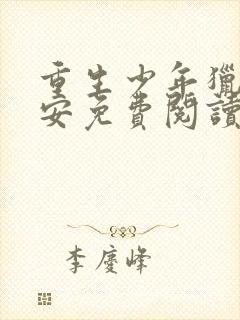 重生少年獵
安免費閱讀
李慶峰